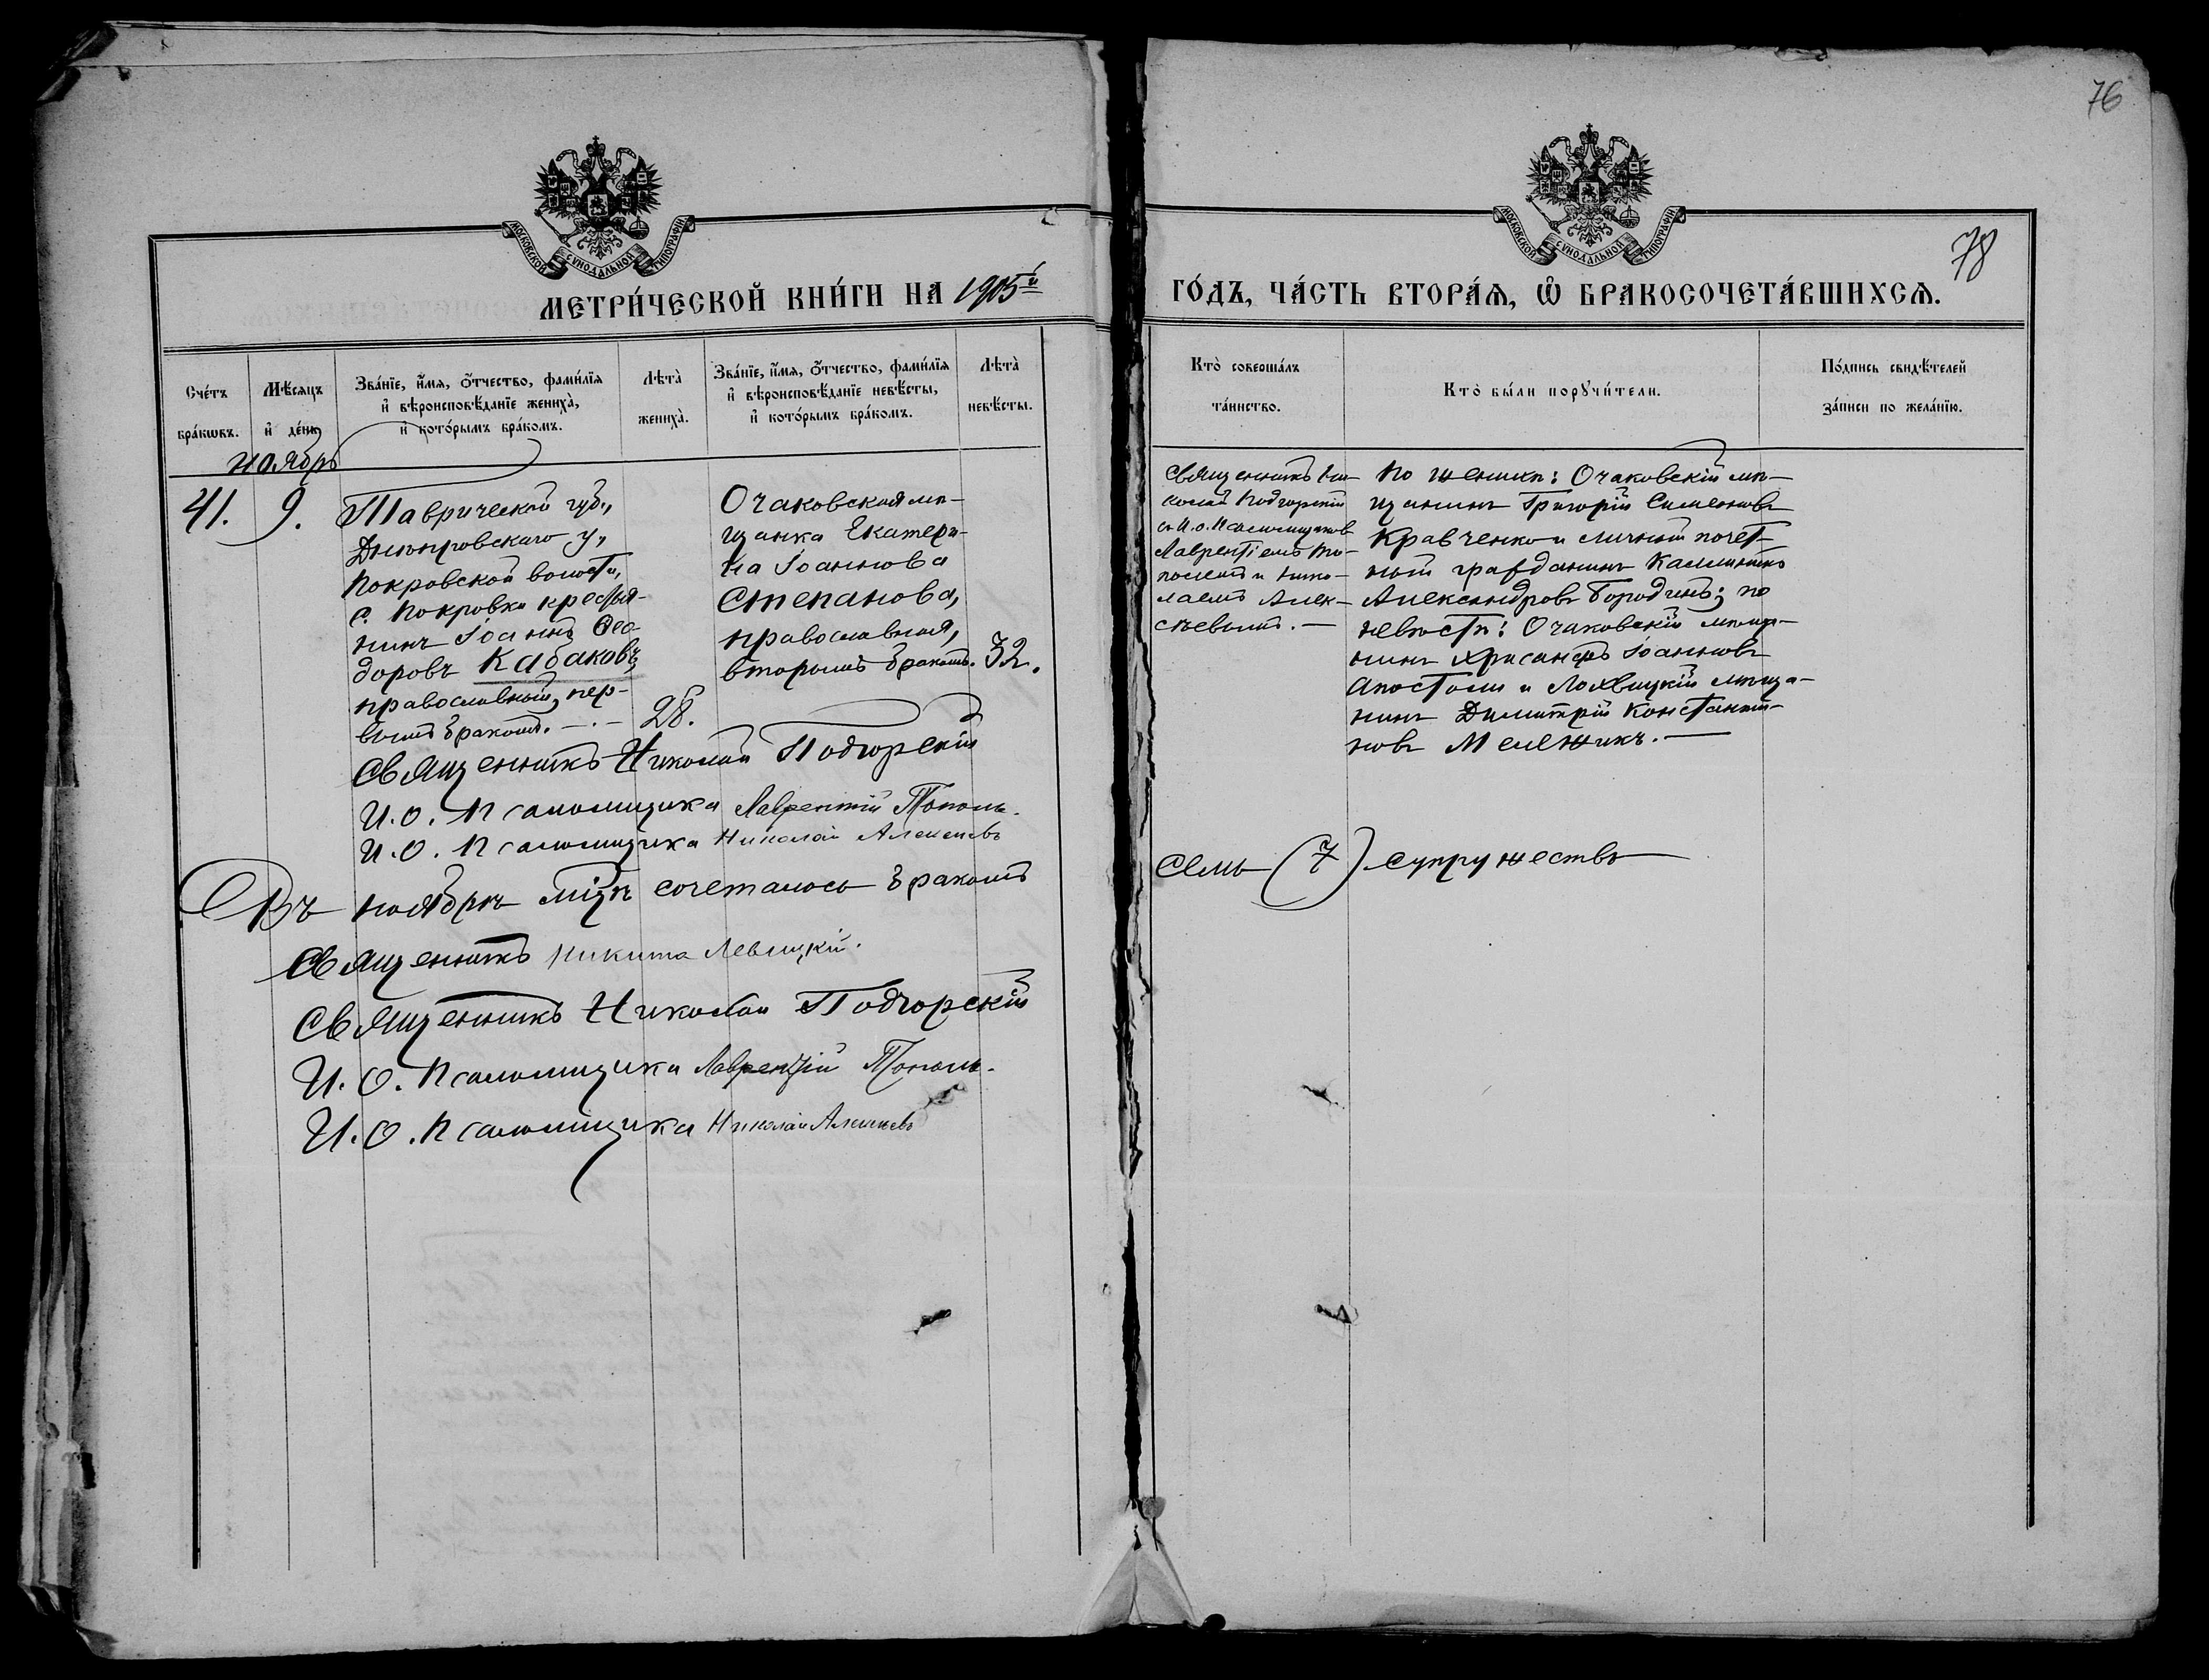 76
МОСКОВСКОЙ СѴНОДАЛЬНОЙ ТИПОГРАФІИ
МОСКОВСКОЙ СѴНОДАЛЬНОЙ ТИПОГРАФІИ
78
МЕТРИ́ЧЕСКОЙ КНИ́ГИ НА 1905й
ГО́ДЪ, ЧА́СТЬ ВТОРА́Ѧ, Ѽ БРАКОСОЧЕТА́ВШИХСѦ.
Сче́тъ
бра́кѡвъ.
Мѣ́сяцъ
и҆ де́нь.
Зва́нїе, и҆́мя, о҆́тчество, фами́лїя
и҆ вѣроисповѣ́данїе жениха̀,
и҆ кото́рымъ бра́комъ.
Лѣта̀
жениха̀.
Зва́нїе, и҆́мя, о҆́тчество, фами́лїя
и҆ вѣроисповѣ́данїе невѣ́сты,
и҆ кото́рымъ бра́комъ.
Лѣта̀
невѣ́сты.
Кто̀ соверша́лъ
та́инство.
Кто̀ бы́ли порꙋчи́тели.
По́дпись свидѣ́телей
за́писи по жела́нїю.
Ноябрь
41.
9.
Таврической губ.,
Днѣпровскаго у.,
Покровской волости,
с. Покровки крестья-
нинъ Іоаннъ Ѳео-
доровъ Кабаковъ,
православный, пер-
вымъ бракомъ. —.—
28.
Очаковская мѣ-
щанка Екатери-
на Іоаннова
Степанова,
православная,
вторымъ бракомъ.
32.
Священникъ Ни-
колай Подгорскій
съ И.о. Псаломщиковъ
Лаврентіемъ То-
полемъ и Нико-
лаемъ Алек-
сѣевымъ. —
По женихѣ: Очаковскій мѣ-
щанинъ Григорій Симеоновъ
Кравченко и личный почет-
ный гражданинъ Каллиникъ
Александровъ Бородинъ; по
невѣстѣ: Очаковскій мѣща-
нинъ Хрисанфъ Іоанновъ
Апостоли и Лохвицкій мѣща-
нинъ Димитрій Константи-
новъ Мележикъ. —
Священникъ Николай Подгорскій
И.О. Псаломщика Лаврентій Тополь.
И.О. Псаломщика Николай Алексѣевъ
Въ ноябрѣ мѣцѣ сочеталось бракомъ
семь (7) супружествъ
Священникъ Никита Левицкій.
Священникъ Николай Подгорскій
И.О. Псаломщика Лаврентій Тополь.
И.О. Псаломщика Николай Алексѣевъ